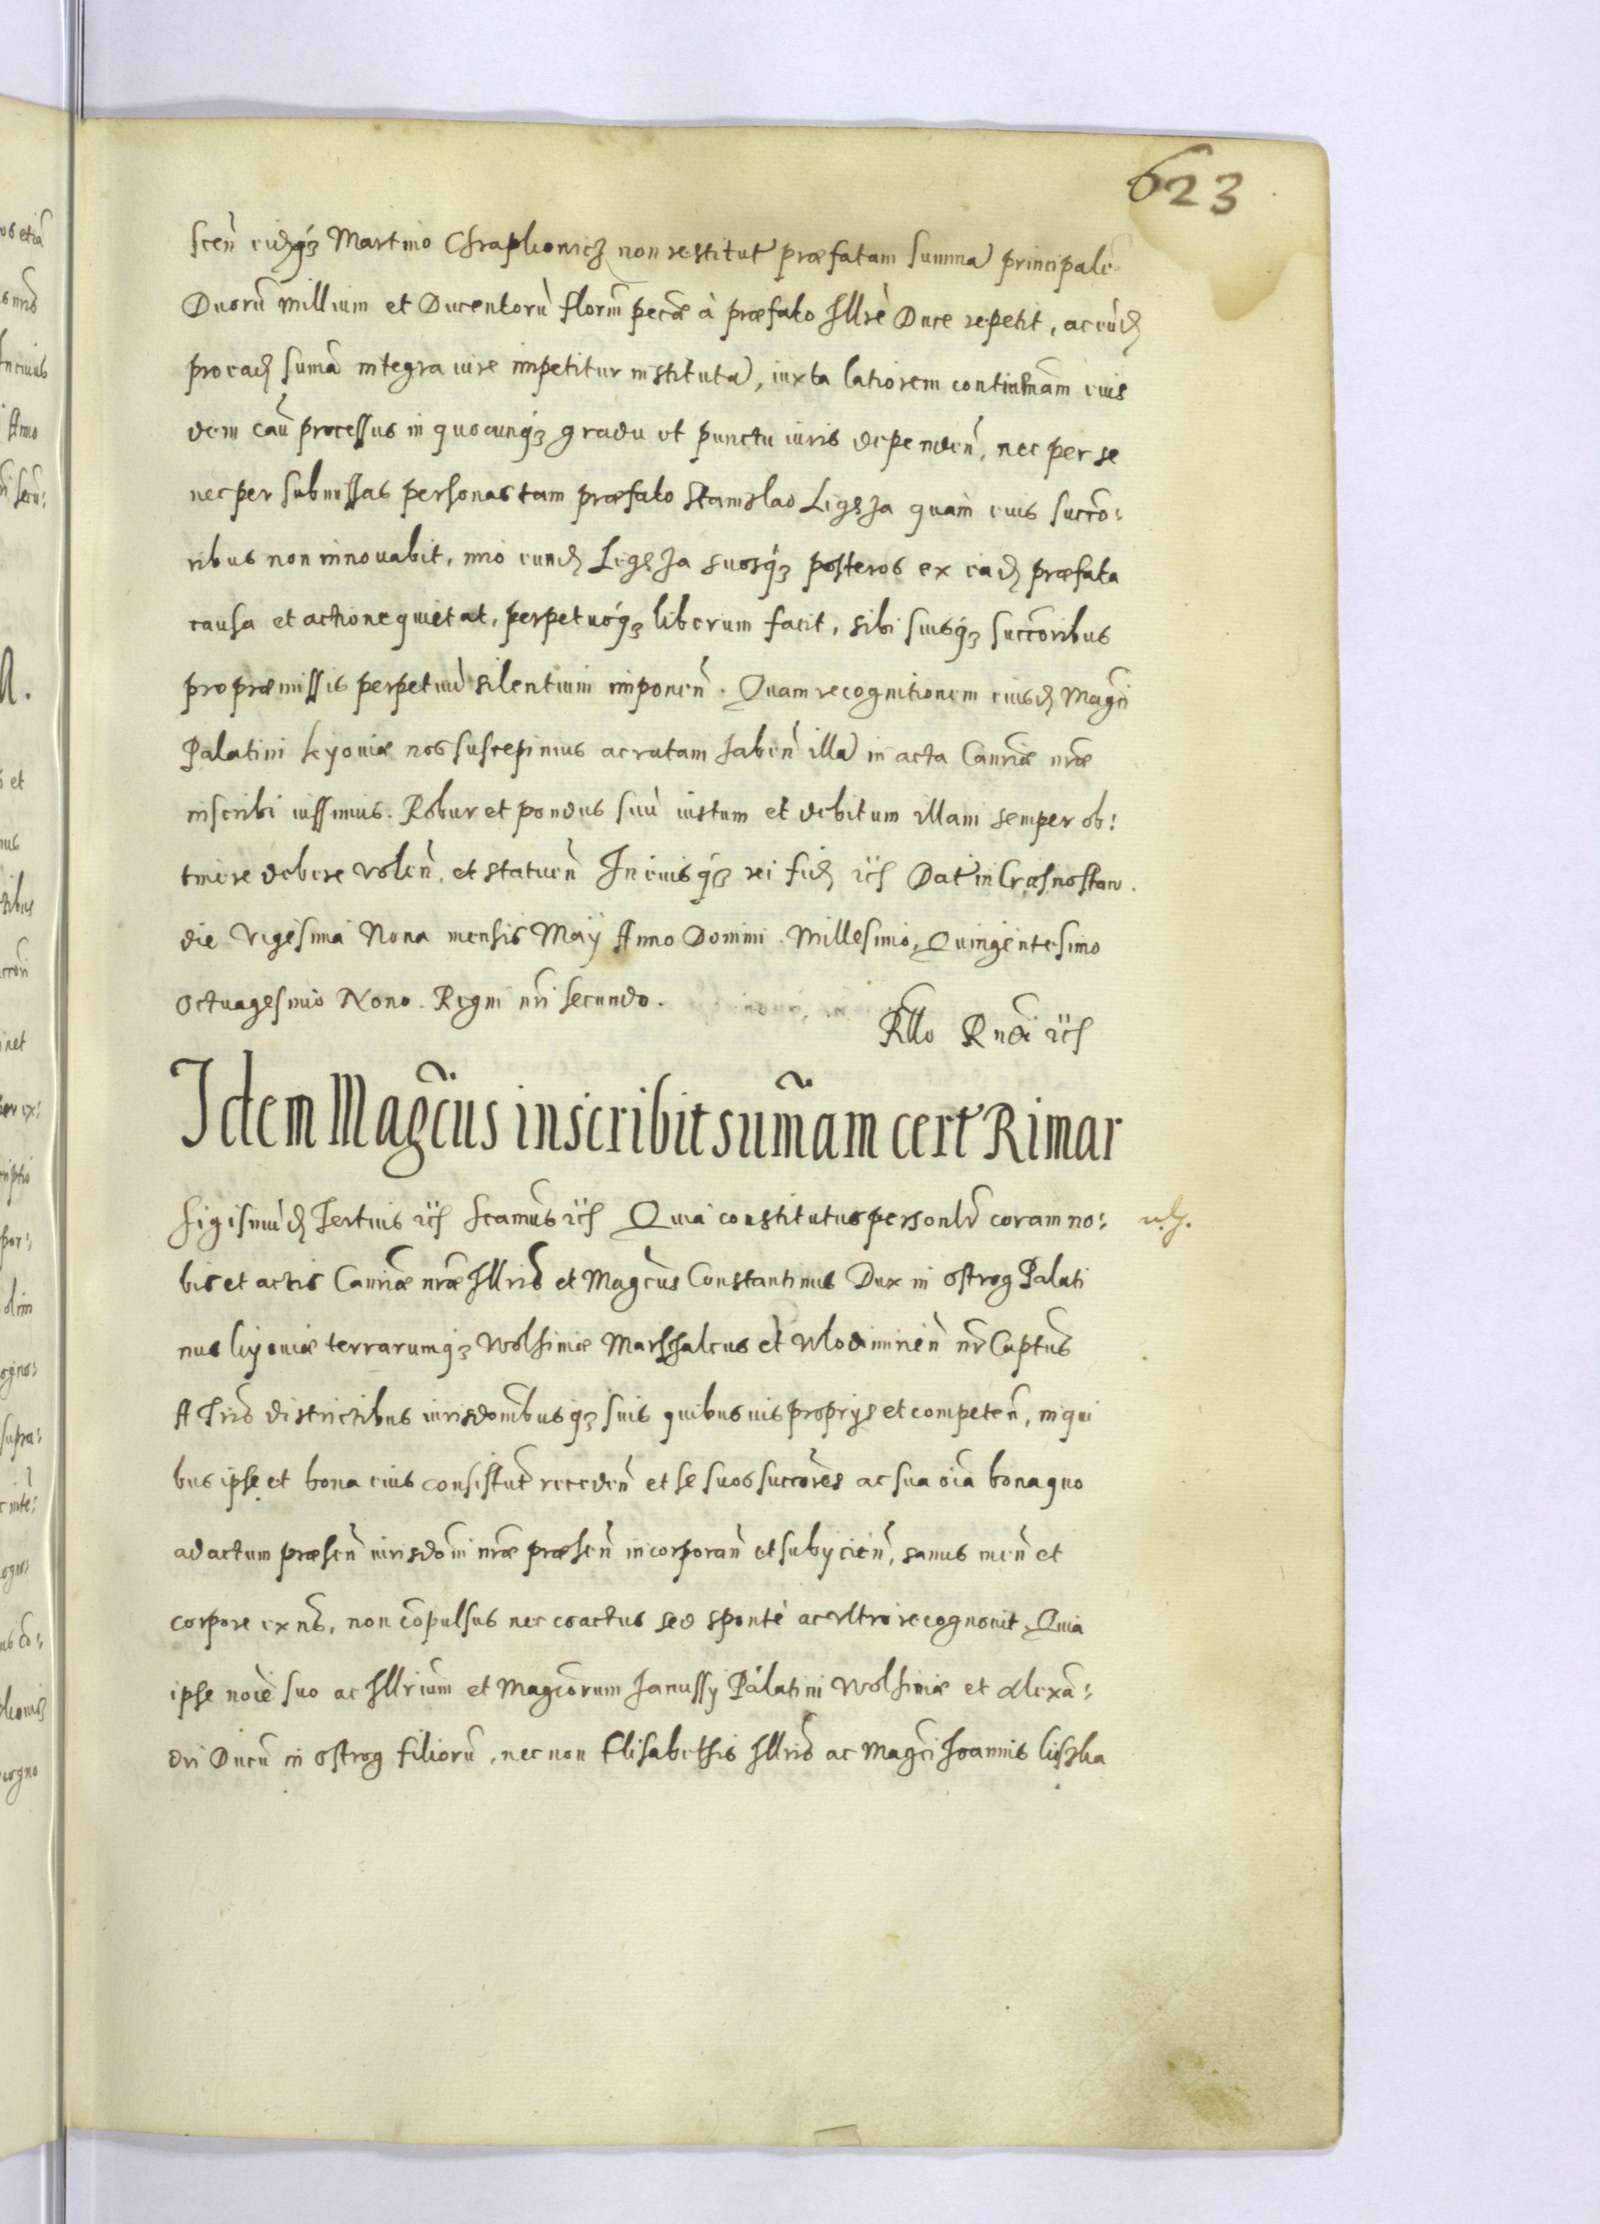 623
scen̄ eidqȝ Martino Chrapliowicz non restitut præfatam summā principalē
Duorū millium et Ducentorū florīn pecæ à præfato Illrē Duce repetit, ac eūd
pro ead sumā integra iure impetitur instituta, iuxta latiorem continēnam eius
dem caū processus in quocunqȝ gradu et punctu iuris dependēn, nec per se
nec per submissas personas tam præfato Stanislao Ligęza quam eius succō:
ribus non innovabit, imo eund Ligęza suosqȝ posteros ex ead præfata
causa et actione quietat, perpetuoqȝ liberum facit, sibi suisqȝ succoribus
pro præmissis perpetuū silentium imponēn. Quam recognitionem eiusd Magci
Palatini Kyoviæ nos suscepimus ac ratam habēn illā in acta Canriæ nræ
inscribi iussimus. Robur et pondus suū iustum et debitum illam semper ob:
tinere debere volēn, et statuēn In cuiusqȝ rei fid etc Dat in Crasnostaw.
die Vigesima Nona mensis Maij Anno Domini Millesimo, Quingentesimo
Octuagesimo Nono. Regni nri secundo.
Rllo Rndi etc
Idem Magcus inscribit sum̄am cert Rimar
Sigismūd Tertius etc Scamus etc Quia constitutus personlr coram no:
bis et actis Canriæ nræ Illris et Magcus Constantinus Dux in Ostrog Palati
nus Kijoviæ terrarumqȝ Wolhiniæ Marschalcus et Wlodimirien̄ nr Captus
A Tris districtibus iurisdonibusqȝ suis quibusuis proprijs et competen̄, in qui
bus ipse et bona eius consistut recedēn et se suos succores ac sua oia bona quo
ad actum præsēn iurisdoni nræ præsēn incorporan̄ et subijciēn, sanus men̄ et
corpore exns, non compulsus nec coactus sed sponte ac vltro recognouit. Quia
ipse noīe suo ac Illrium et Magcorum Janussy Palatini Wolhiniæ et Alexā:
dri Ducū in Ostrog filiorū, nec non Elisabethis Illris ac Magci Joannis Kiszka